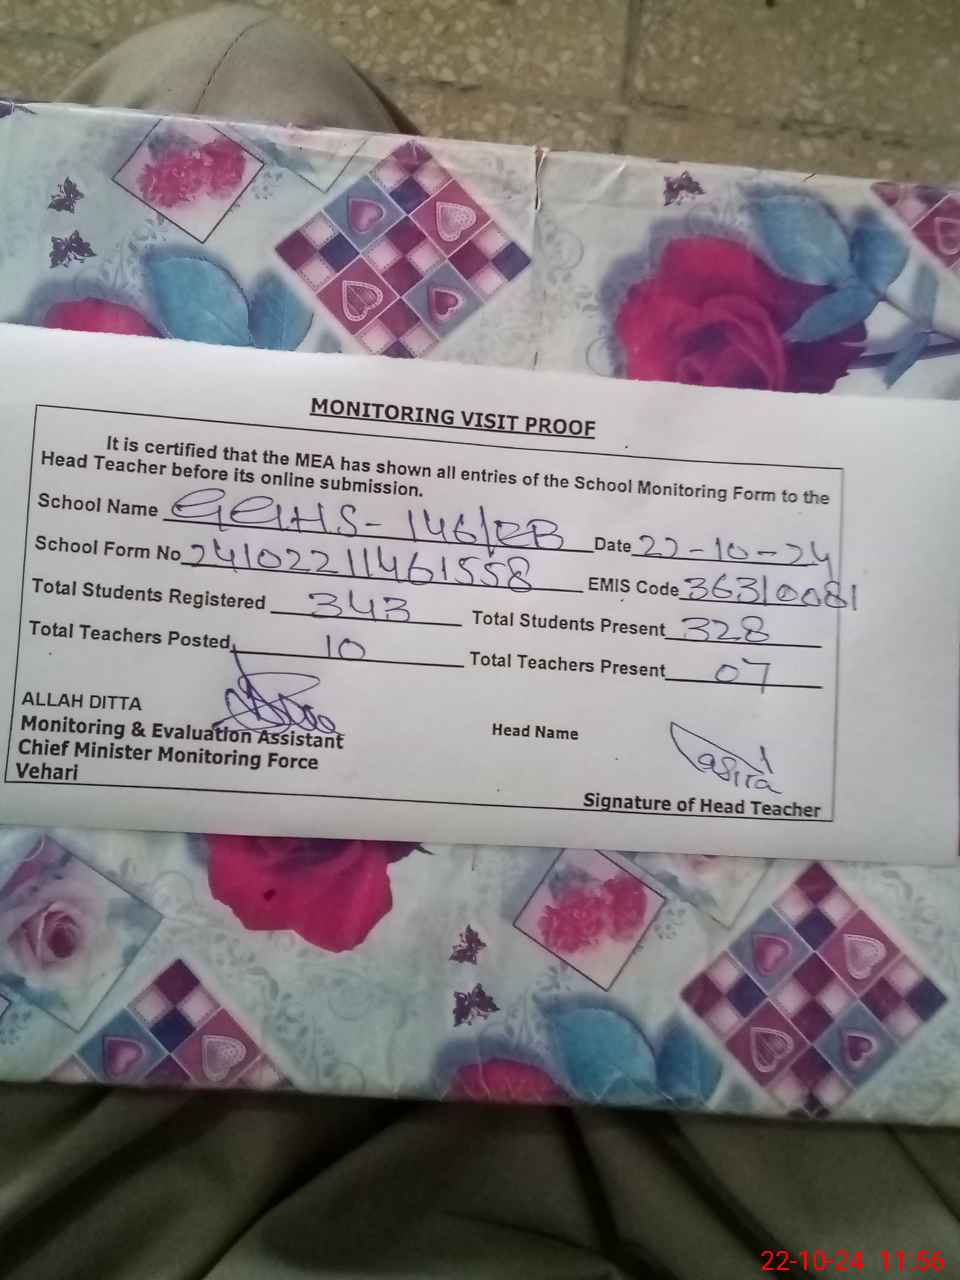 MONITORING VISIT PROOF
It is certified that the MEA has shown all entries of the School Monitoring Form to the
Head Teacher before its online submission.
School Name GGHS-146/EB Date 22-10-24
School Form No 24102211461558 EMIS Code 36310081
Total Students Registered 343 Total Students Present 328
Total Teachers Posted 10 Total Teachers Present 07
ALLAH DITTA
Monitoring & Evaluation Assistant Head Name
Chief Minister Monitoring Force
Vehari
Signature of Head Teacher
22-10-24 11:56